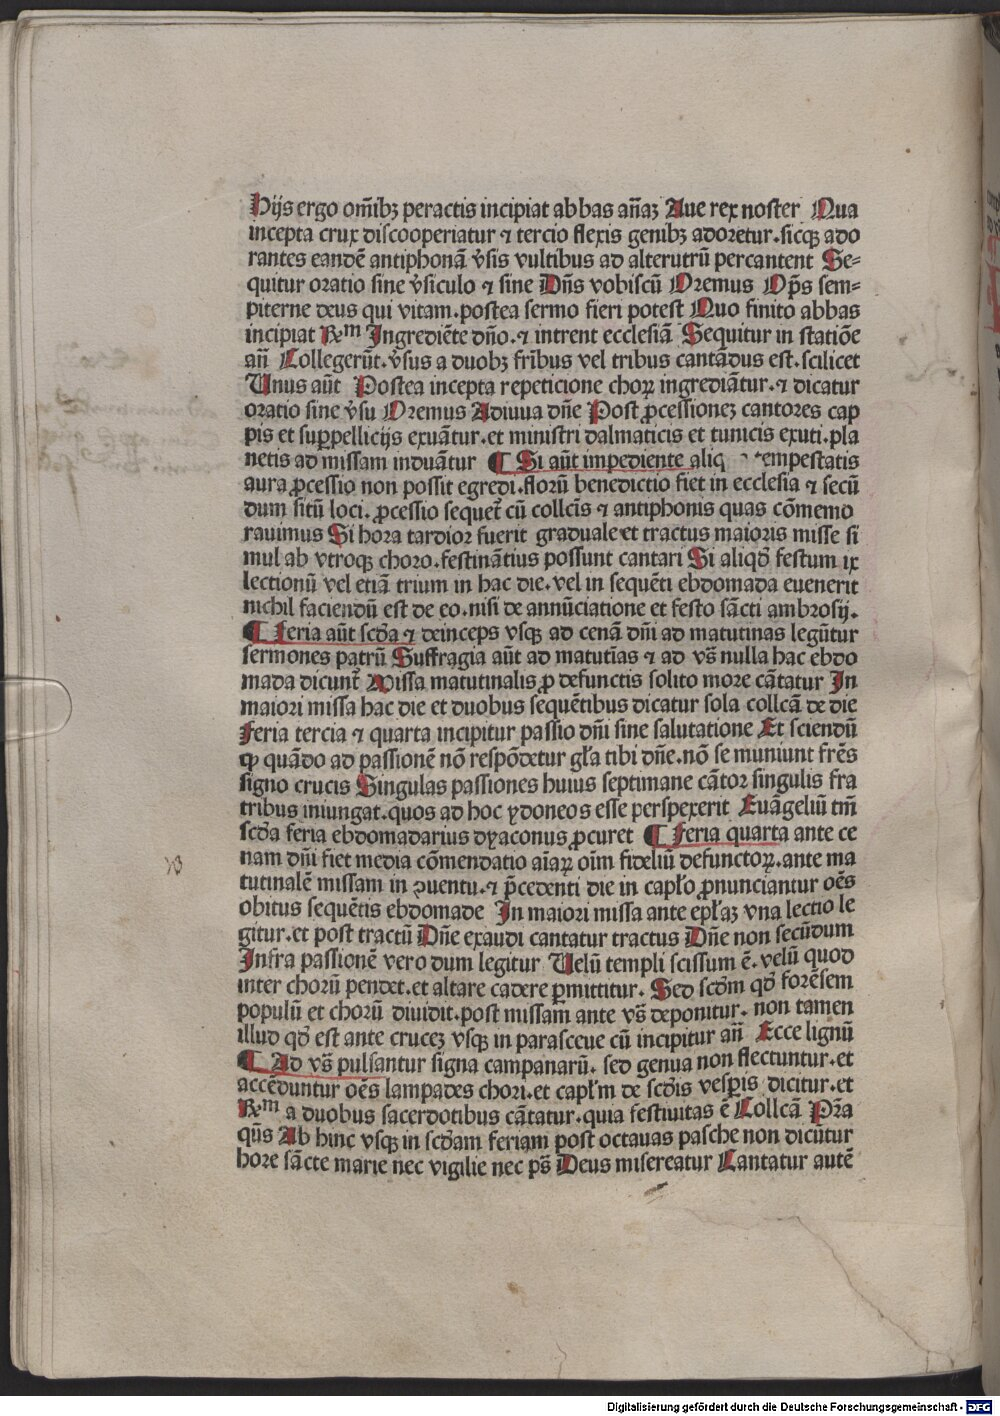 Hijs ergo om̄ibꝫ peractis incipiat abbas an̄aꝫ Aue rex noster Qua
incepta crux discooperiatur ⁊ tercio flexis genibꝫ adoretur.sicqꝫ ado
rantes eandē antiphonā v̄sis vultibus ad alterutrū percantent Se⸗
quitur oratio sine v̄siculo ⁊ sine Dn̄s vobiscū Oremus Op̄s sem⸗
piterne deus qui vitam.postea sermo fieri potest Quo finito abbas
incipiat Rm̄ Ingrediēte dn̄o.⁊ intrent ecclesiā Sequitur in statiōe
an̄ Collegerūt.v̄sus a duobꝫ fr̄ibus vel tribus cantādus est.scilicet
Unus aūt Postea incepta repeticione choꝝ ingrediātur.⁊ dicatur
oratio sine v̄su Oremus Adiuua dn̄e Post ꝓcessioneꝫ cantores cap
pis et suꝑpellicijs exuātur.et ministri dalmaticis et tunicis exuti.pla
netis ad missam induātur ¶ Si aūt impediente aliq tempestatis
aura ꝓcessio non possit egredi.florū benedictio fiet in ecclesia ⁊ secū
dum sitū loci.ꝓcessio sequet̄ cū collc̄is ⁊ antiphonis quas cōmemo
rauimus Si hora tardior fuerit graduale et tractus maioris misse si
mul ab vtroqꝫ choro.festinātius possunt cantari Si aliqd̄ festum ix
lectionū vel etiā trium in hac die.vel in sequēti ebdomada euenerit
nichil faciendū est de eo.nisi de annūciatione et festo sācti ambrosij.
¶ Feria aūt scd̄a ⁊ deinceps vsqꝫ ad cenā dn̄i ad matutinas legūtur
sermones patrū Suffragia aūt ad matutīas ⁊ ad vs̄ nulla hac ebdo
mada dicunt̄ Missa matutinalis ꝓ defunctis solito more cātatur In
maiori missa hac die et duobus sequētibus dicatur sola collcā de die
Feria tercia ⁊ quarta incipitur passio dn̄i sine salutatione Et sciendū
ꝙ quādo ad passionē nō respōdetur gl̄a tibi dn̄e.nō se muniunt frēs
signo crucis Singulas passiones huius septimane cātor singulis fra
tribus iniungat.quos ad hoc ydoneos esse perspexerit Euāgeliū tm̄
scd̄a feria ebdomadarius dyaconus ꝓcuret ¶ Feria quarta ante ce
nam dn̄i fiet media cōmendatio aīaꝝ oīm fideliū defunctoꝝ.ante ma
tutinalē missam in ꝯuentu.⁊ p̄cedenti die in capl̄o ꝓnunciantur oēs
obitus sequētis ebdomade In maiori missa ante epl̄aꝫ vna lectio le
gitur.et post tractū Dn̄e exaudi cantatur tractus Dn̄e non secūdum
Infra passionē vero dum legitur Uelū templi scissum ē.velū quod
inter chorū pendet.et altare cadere ꝑmittitur. Sed scd̄m qd̄ forēsem
populū et chorū diuidit.post missam ante vs̄ deponitur. non tamen
illud qd̄ est ante cruceꝫ vsqꝫ in parasceue cū incipitur an̄ Ecce lignū
¶ Ad vs̄ pulsantur signa campanarū. sed genua non flectuntur.et
accēduntur oēs lampades chori.et capl̄m de scd̄is vesꝑis dicitur.et
Rm̄ a duobus sacerdotibus cātatur.quia festiuitas ē Collcā Pr̄a
qūs Ab hinc vsqꝫ in scd̄am feriam post octauas pasche non dicūtur
hore sācte marie nec vigilie nec ps̄ Deus misereatur Cantatur autē
Digitalisierung gefördert durch die Deutsche Forschungsgemeinschaft - DFG